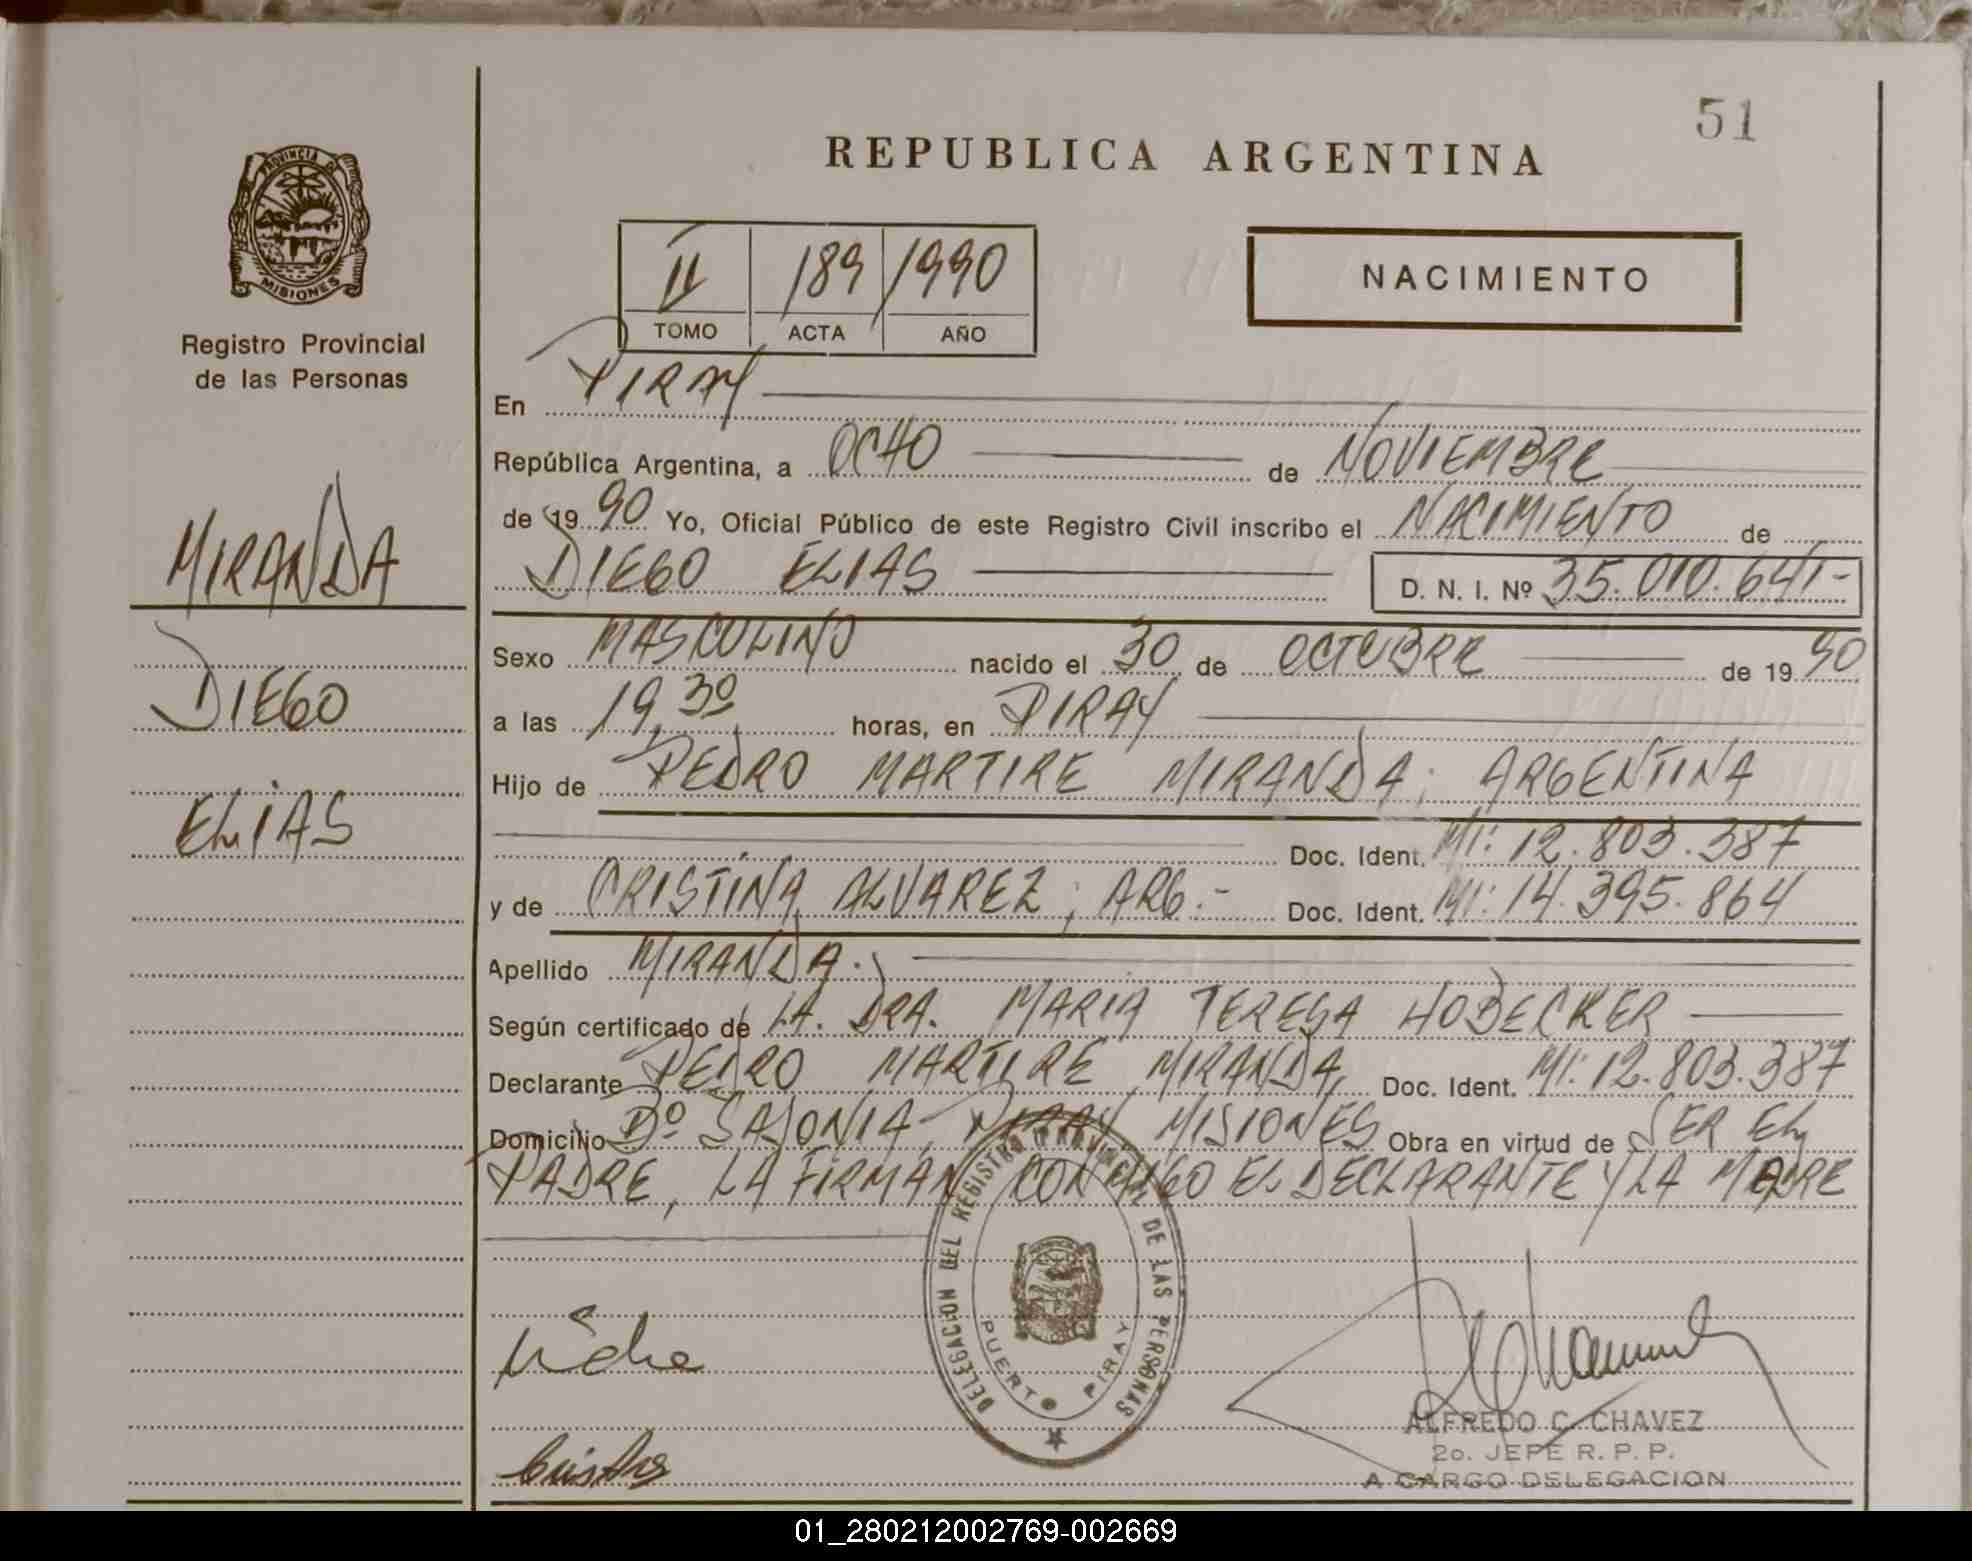 51
REPUBLICA ARGENTINA
PROVINCIA DE
MISIONES
Registro Provincial
de las Personas
II 189 1990
TOMO ACTA AÑO
NACIMIENTO
MIRANDA
DIEGO
ELIAS
En PIRAY
República Argentina, a OCHO de NOVIEMBRE
de 1990 Yo, Oficial Público de este Registro Civil inscribo el NACIMIENTO de
DIEGO ELIAS D. N. I. Nº 35.010.641-
Sexo MASCULINO nacido el 30 de OCTUBRE de 1990
a las 19,30 horas, en PIRAY
Hijo de PEDRO MARTIRE MIRANDA; ARGENTINA
Doc. Ident. MI: 12.803.387
y de CRISTINA ALVAREZ; ARG.- Doc. Ident. MI: 14.395.864
Apellido MIRANDA.
Según certificado de LA. DRA. MARIA TERESA HOBECKER
Declarante PEDRO MARTIRE MIRANDA, Doc. Ident. MI: 12.803.387
Domicilio Bº SAJONIA, PIRAY MISIONES Obra en virtud de SER EL
PADRE, LA FIRMAN CONMIGO EL DECLARANTE Y LA MADRE
DELEGACION DEL REGISTRO PROVINCIAL DE LAS PERSONAS
PUERTO PIRAY
ALFREDO C. CHAVEZ
2o. JEFE R. P. P.
A CARGO DELEGACION
01_280212002769-002669